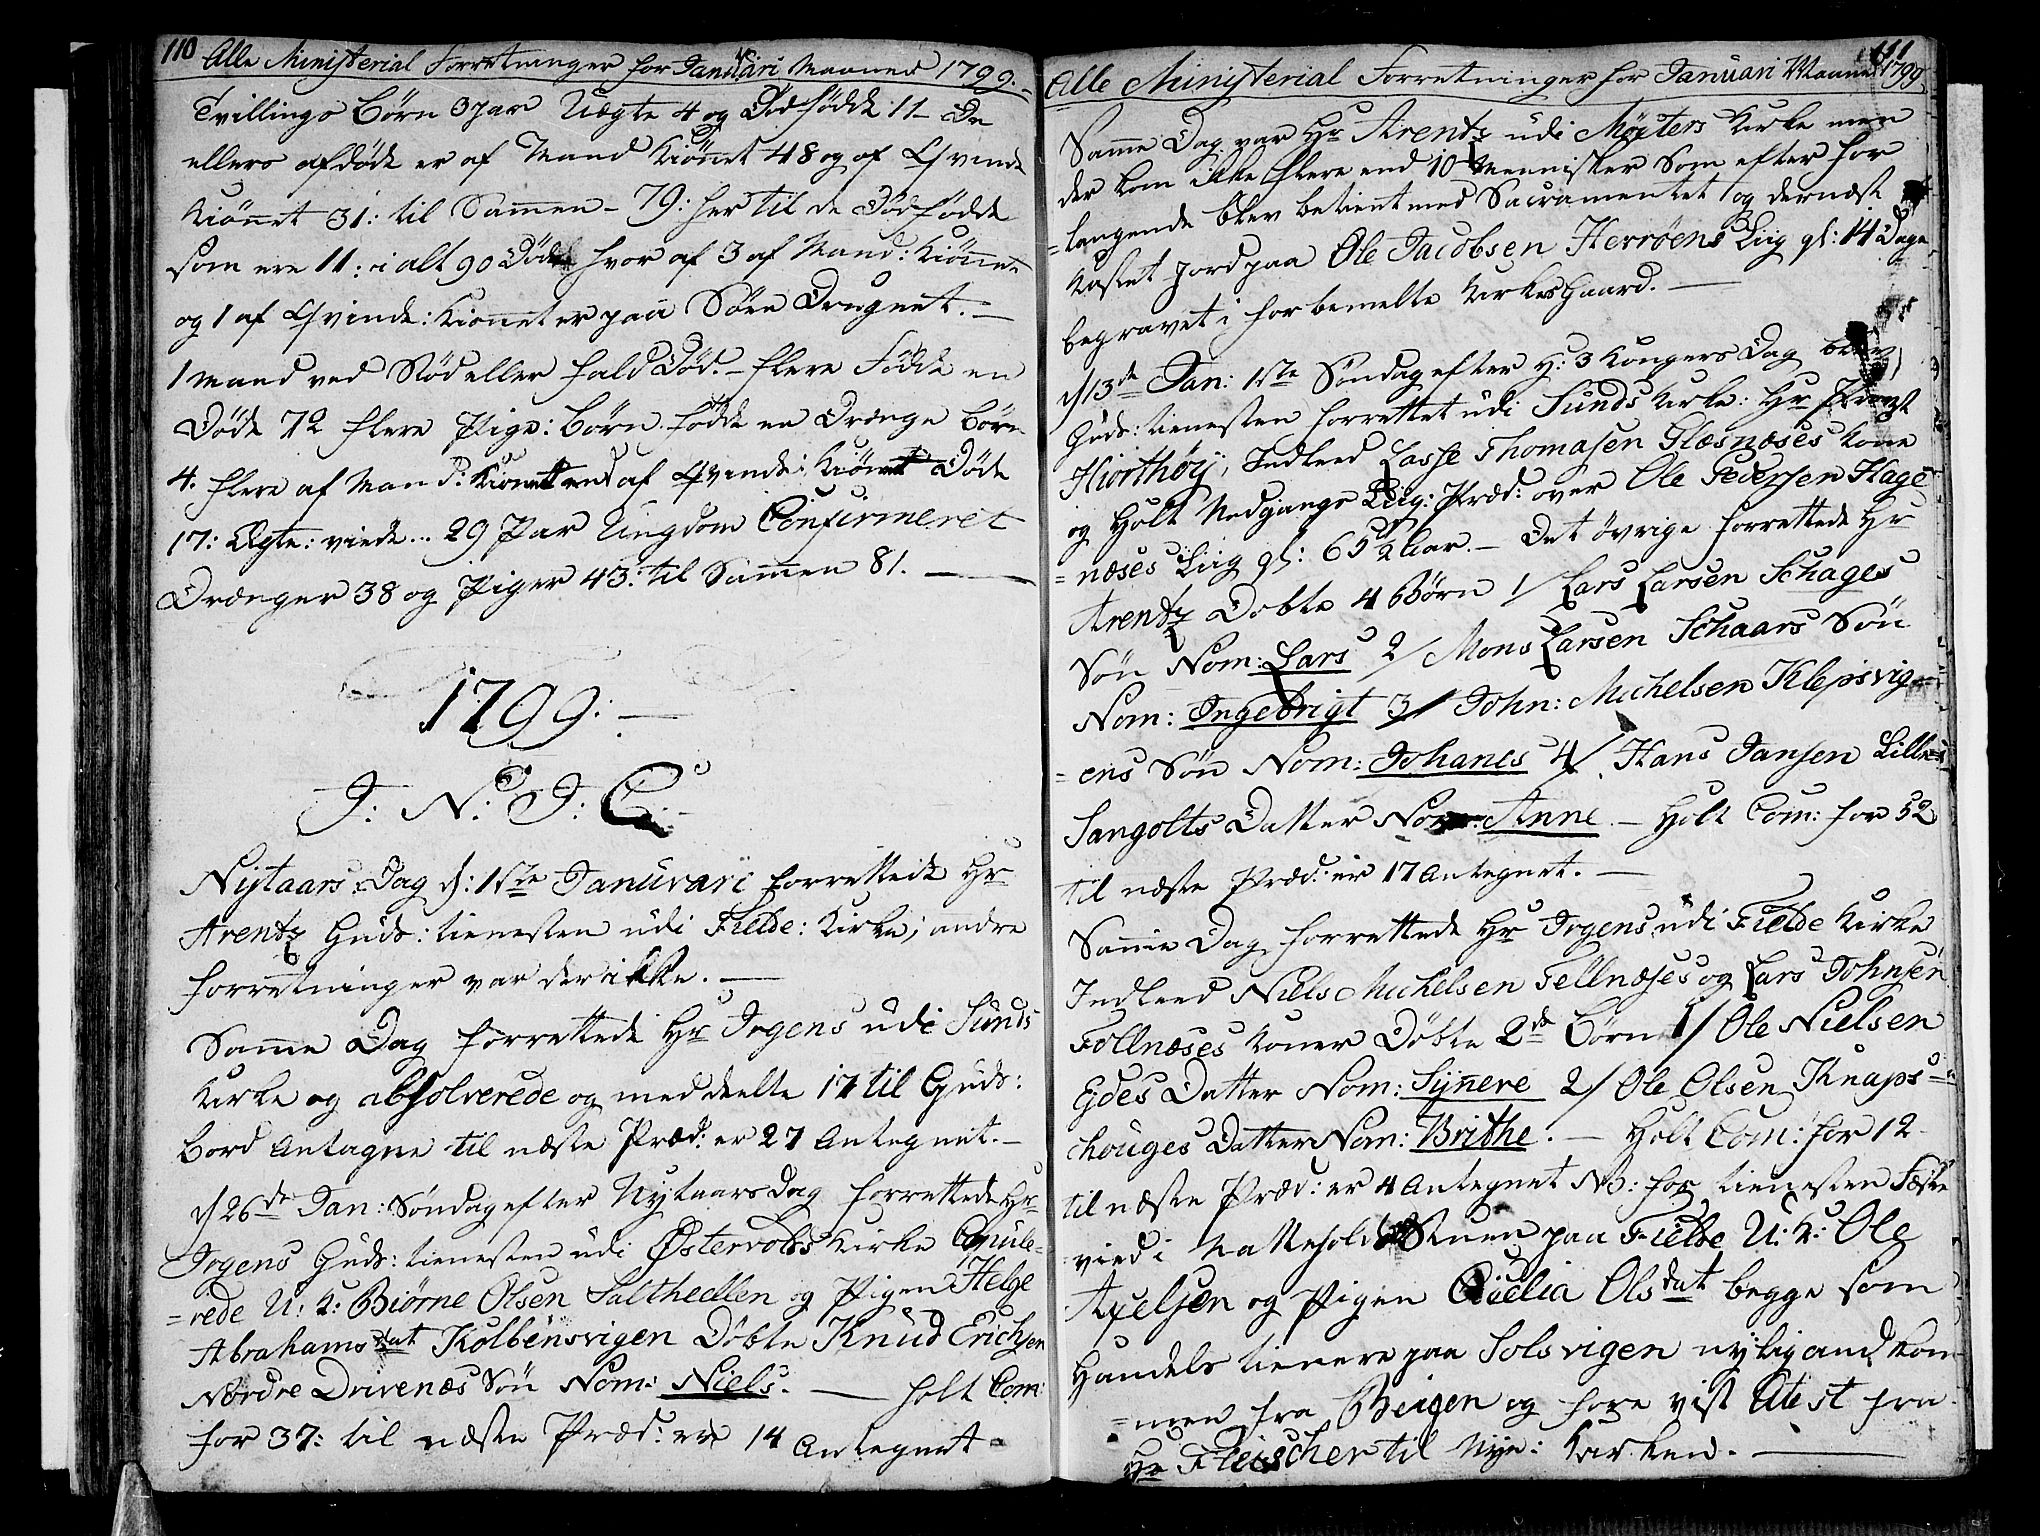 110 Alle Ministerial Forretninger for Januari Maaned 1799.
Tvillings Børn 3 par Uægte 4 og Dødfødde 11 – De
ellers afdøde er af Mand Kiönnet 48 og af Qvinde
Kiönnet 31: til Sammen – 79: her til de Dödfödde
som ere 11: i alt 90 Døde hvor af 3 af Mand: Kiönnet
og 1 af Qvinde: Kiönnet er paa Söen Drugnet. –
1 Mand ved Stöd eller fald Död. – flere Födde en
Døde 72 flere Pige: Børn födde en Drænge Børn
4. flere af Mand: Kiönnet end af Qvinde: Kiönnet Døde
17: Ægte: viede .. 29 Par Ungdom Confirmeret
Drænger 38 og Piger 43: til Sammen 81. —
1799: —
J: N: J: C:
Nytaars: Dag d: 1ste Januvari forrettede Hr
Arentz Guds: tienesten udi Fielde: Kirke; andre
forretninger var der ikke. —
Samme Dag forrettede Hr Irgens udi Sunds
Kirke og absolverede og meddeelte 17 til Guds:
bord Antagne til næste Præd: er 27 Antegnet. –
d 6de Jan: Söndag efter Nytaarsdag forrettede Hr
Irgens Guds: tienesten udi Østervolds Kirke Copule=
=rede U: K: Biørne Olsen Salthellen og Pigen Helge
Abrahamsdat Kolbensvigen Døbte Knud Erichsen
Nordre Drivenæs Sön Nom: Niels. — holt Com:
for 37: til næste Præd: er 14 Antegnet –
111
Alle Ministerial Forretninger for Januari Maaned 1799
Samme Dag var Hr Arentz udi Møgters Kirke men
der kom ikke flere end 10 Mennisker Som efter for
=langende blev betient med Sacramentet og dernæst
kastet jord paa Ole Jacobsen Herrøens Liig gl: 14 Dage
begravet i forbemelte Kirkes Gaard. —
d 13de Jan: 1ste Söndag efter H: 3 Kongers Dag blev
Guds: tienesten forrettet udi Sunds Kirke: Hr Provst
Hiorthöÿ, Indleed Lasse Thomasen Flæsnæses Kone
og holt Nedgangs Liig: Præd: over Ole Pedersen Hage
=næses Liig gl: 65½ Aar. – Det övrige forrettede Hr
Arentz Dobte 4 Børn 1/ Lars Larsen Schages
Sön Nom: Lars 2/ Mons Larsen Schaars Sön
Nom: Ingebrigt 3/ John: Michelsen Klepsvig
=ens Sön Nom: Johanes 4/ Hans Jansen Lille
Sangolts Datter Nom: Anne. – holt Com: for 52
til næste Præd: er 17 Antegnet. —
Samme Dag forrettede Hr Irgens udi Fielde Kirke
Indleed Niels Michelsen Tellnæses og Lars Johnsen
Follnæses Koner Døbte 2de Børn 1/ Ole Nielsen
Eydes Datter Nom: Synere 2/ Ole Olsen Knaps=
houges Datter Nom: Brithe. — holt Com: for 12 –
til næste Præd: er 4 Antegnet NB: for tienesten
vied i paa Fielde U: K: Ole
Axelsen og Pigen Cicelia Olsdat begge som
Handels tienere paa Solsvigen nylig and kom
=men fra Bergen og fore vist Atest fra
Hr Fleischer til Nye: Kirken. —